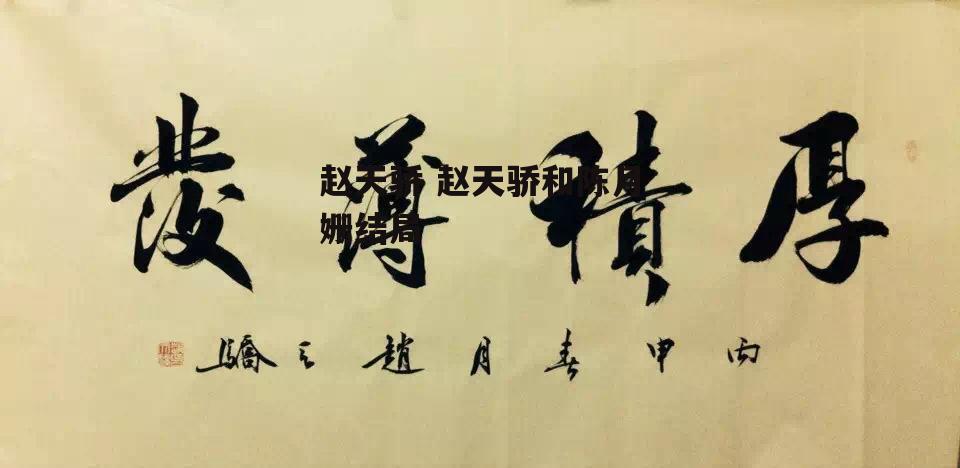 厚積薄發
丙申春月趙天驕
赵天骄 赵天骄和陈月
姗结局